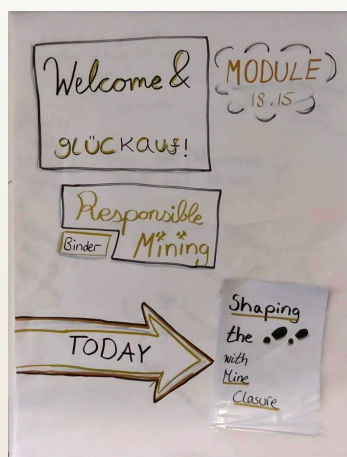 Welcome &
glückauf!
MODULE
18.15
Responsible
Binder
Mining
TODAY
Shaping
the
with
Mine
Closure